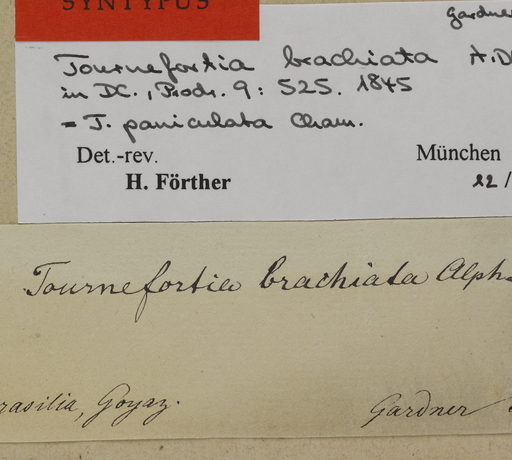 SYNTYPUS
Gardner
Tournefortia brachiata A.D
in DC., Prodr. 9: 525. 1845
= T. paniculata Cham.
Det.-rev. München
H. Förther 22/
Tournefortia brachiata Alph.
rasilia, Goyaz. Gardner